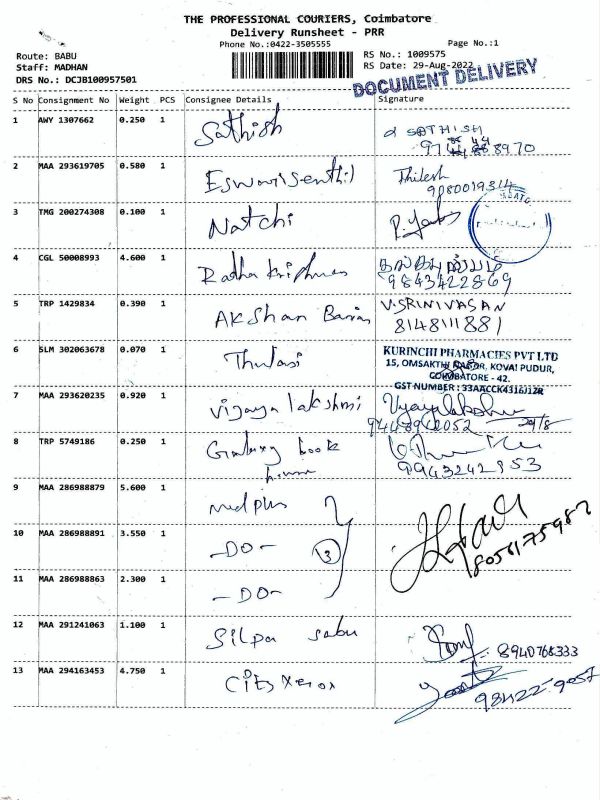 THE PROFESSIONAL COURIERS, Coimbatore
Delivery Runsheet - PRR
Phone No.:0422-3505555 Page No.:1
Route: BABU RS No.: 1009575
Staff: MADHAN RS Date: 29-Aug-2022
DRS No.: DCJB100957501
DOCUMENT DELIVERY
S No Consignment No Weight PCS Consignee Details Signature
1 AWY 1307662 0.250 1 Sathish SATHISH
2 MAA 293619705 0.580 1 Eswarisenthil Thilesh
9080019314
3 TMG 200274308 0.100 1 Natchi
4 CGL 50008993 4.600 1 Radha Krishnan
9843422869
5 TRP 1429834 0.390 1 Akshan V.SRINIVASAN
8148111881
6 SLM 302063678 0.070 1 Thulasi KURINCHI PHARMACIES PVT LTD
15, OMSAKTHI NAGOR, KOVAI PUDUR,
COIMBATORE - 42.
GST NUMBER : 33AACCK4316J1ZR
7 MAA 293620235 0.920 1 Vijaya lakshmi Vijayalakshmi
9448942052 29/8
8 TRP 5749186 0.250 1 Galaxy book
house 9943242953
9 MAA 286988879 5.600 1 medplus
10 MAA 286988891 3.550 1 -DO- 3 8056175982
11 MAA 286988863 2.300 1 -DO-
12 MAA 291241063 1.100 1 Silpa sabu 8940768333
13 MAA 294163453 4.750 1 City xerox 98422-9057